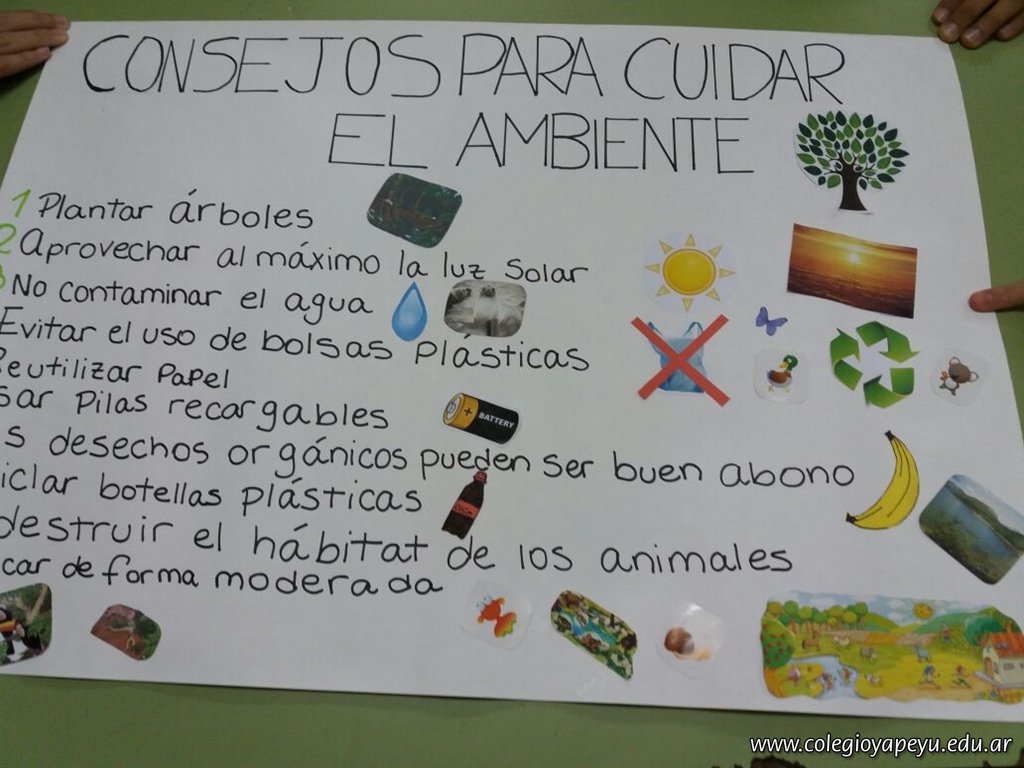 CONSEJOS PARA CUIDAR
EL AMBIENTE
1 Plantar árboles
2 Aprovechar al máximo la luz Solar
3 No contaminar el agua
Evitar el uso de bolsas Plásticas
Reutilizar Papel
sar Pilas recargables
BATTERY
s desechos orgánicos pueden ser buen abono
iclar botellas plásticas
destruir el hábitat de los animales
car de forma moderada
www.colegioyapeyu.edu.ar